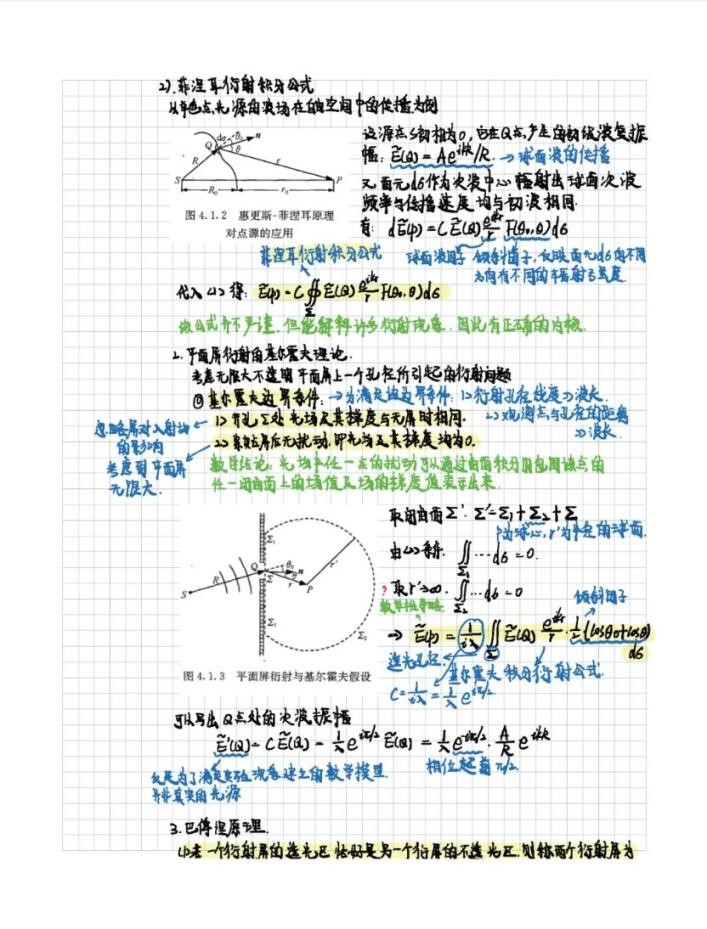 2). 菲涅耳衍射积分公式
以单色点光源的波场在自由空间中的传播为例
dσ θ₀ n
Q θ
R r
S P
R₀ r₀
图 4.1.2 惠更斯-菲涅耳原理
对点源的应用
设源点S初相为0，它在Q点产生的初级波复振
幅：Ẽ(Q) = Ae^{ikR}/R. → 球面波的传播
又面元dσ作为次波中心辐射出球面次波
频率与传播速度均与初波相同.
有：dẼ(p) = CẼ(Q) e^{ikr}/r F(θ₀,θ)dσ
菲涅耳衍射积分公式
球面波因子 倾斜因子，反映面元dσ向不同
方向有不同的辐射强度
代入(1)得：Ẽ(p) = C∯_Σ Ẽ(Q) e^{ikr}/r F(θ₀,θ)dσ
该公式并不严谨，但能解释许多衍射现象，因此有正确的内核.
2. 平面屏衍射的基尔霍夫理论.
考虑无限大不透明平面屏上一个孔径所引起的衍射问题
① 基尔霍夫边界条件. → 为满足边界条件：1> 衍射孔径线度》波长.
1> 开孔Σ处光场及其梯度与无屏时相同.
2> 观测点与孔径的距离
》波长.
忽略屏对入射场
的影响
2> 紧贴屏后无扰动，即光场及其梯度均为0.
考虑到平面屏
无限大.
数学结论：光场中任一点的扰动可以通过曲面积分用包围该点的
任一闭曲面上的场值及场的梯度值表示出来.
取闭曲面Σ'：Σ'=Σ₁+Σ₂+Σ
P为球心，r'为半径的球面.
由(2)条件：∬_{Σ₁} … dσ = 0.
? 取r'→∞. ∬_{Σ₂} … dσ = 0
倾斜因子
⇒ Ẽ(p) = 1/iλ ∬_Σ Ẽ(Q) e^{ikr}/r · 1/2 (cosθ₀+cosθ)
dσ
透光孔径. 基尔霍夫积分衍射公式.
C = 1/iλ = 1/λ e^{-iπ/2}
Σ₁
Q θ₀
R θ n
S Σ r P r'
Σ₁
Σ₂
图 4.1.3 平面屏衍射与基尔霍夫假设
可以写出Q点处的次波振幅
Ẽ'(Q) = CẼ(Q) = 1/λ e^{-iπ/2} Ẽ(Q) = 1/λ e^{-iπ/2} · A/R e^{ikR}
只是为了满足实验现象建立的数学模型. 相位超前π/2.
并非真实的光源
3. 巴俾涅原理.
(1) 若一个衍射屏的透光区恰好是另一个衍屏的不透光区，则称两个衍射屏为